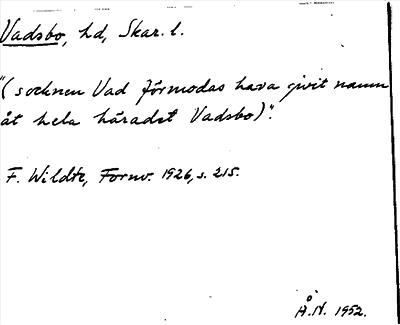 Vadsbo, hd, Skar. l.
"(socknen Vad förmodas hava givit namn
åt hela häradet Vadsbo)".
F. Wildte, Fornv. 1926, s. 215.
Å.N. 1952.